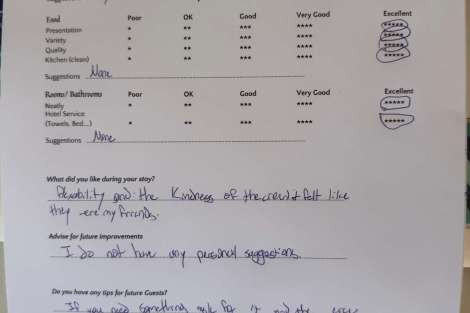 Food Poor OK Good Very Good Excellent
Presentation * ** *** **** *****
Variety * ** *** **** *****
Quality * ** *** **** *****
Kitchen (clean) * ** *** **** *****
Suggestions None
Rooms/ Bathrooms Poor OK Good Very Good Excellent
Neatly * ** *** **** *****
Hotel Service
(Towels, Bed...) * ** *** **** *****
Suggestions None
What did you like during your stay?
flexibility and the Kindness of the crew I felt like
they ere my friends.
Advise for future improvements
I do not have any personal suggestions.
Do you have any tips for future Guests?
If you need something ask for it and the crew